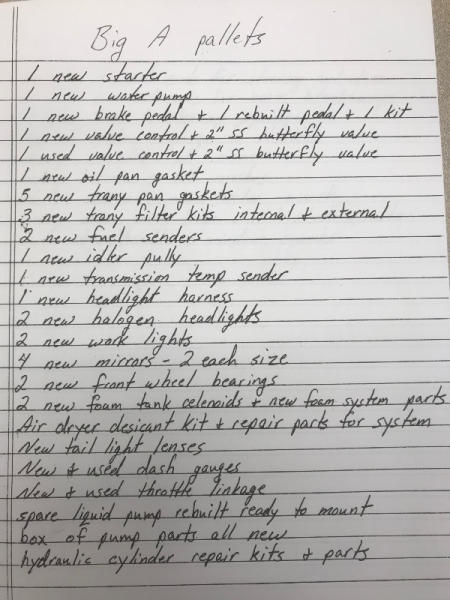 Big A pallets
1 new starter
1 new water pump
1 new brake pedal & 1 rebuilt pedal & 1 kit
1 new valve control & 2" SS butterfly valve
1 used valve control & 2" SS butterfly valve
1 new oil pan gasket
5 new trany pan gaskets
3 new trany filter kits internal & external
2 new fuel senders
1 new idler pully
1 new transmission temp sender
1 new headlight harness
2 new halogen headlights
2 new work lights
4 new mirrors - 2 each size
2 new front wheel bearings
2 new foam tank celenoids & new foam system parts
Air dryer desicant kit & repair parts for system
New tail light lenses
New & used dash gauges
New & used throttle linkage
spare liquid pump rebuilt ready to mount
box of pump parts all new
hydraulic cylinder repair kits & parts